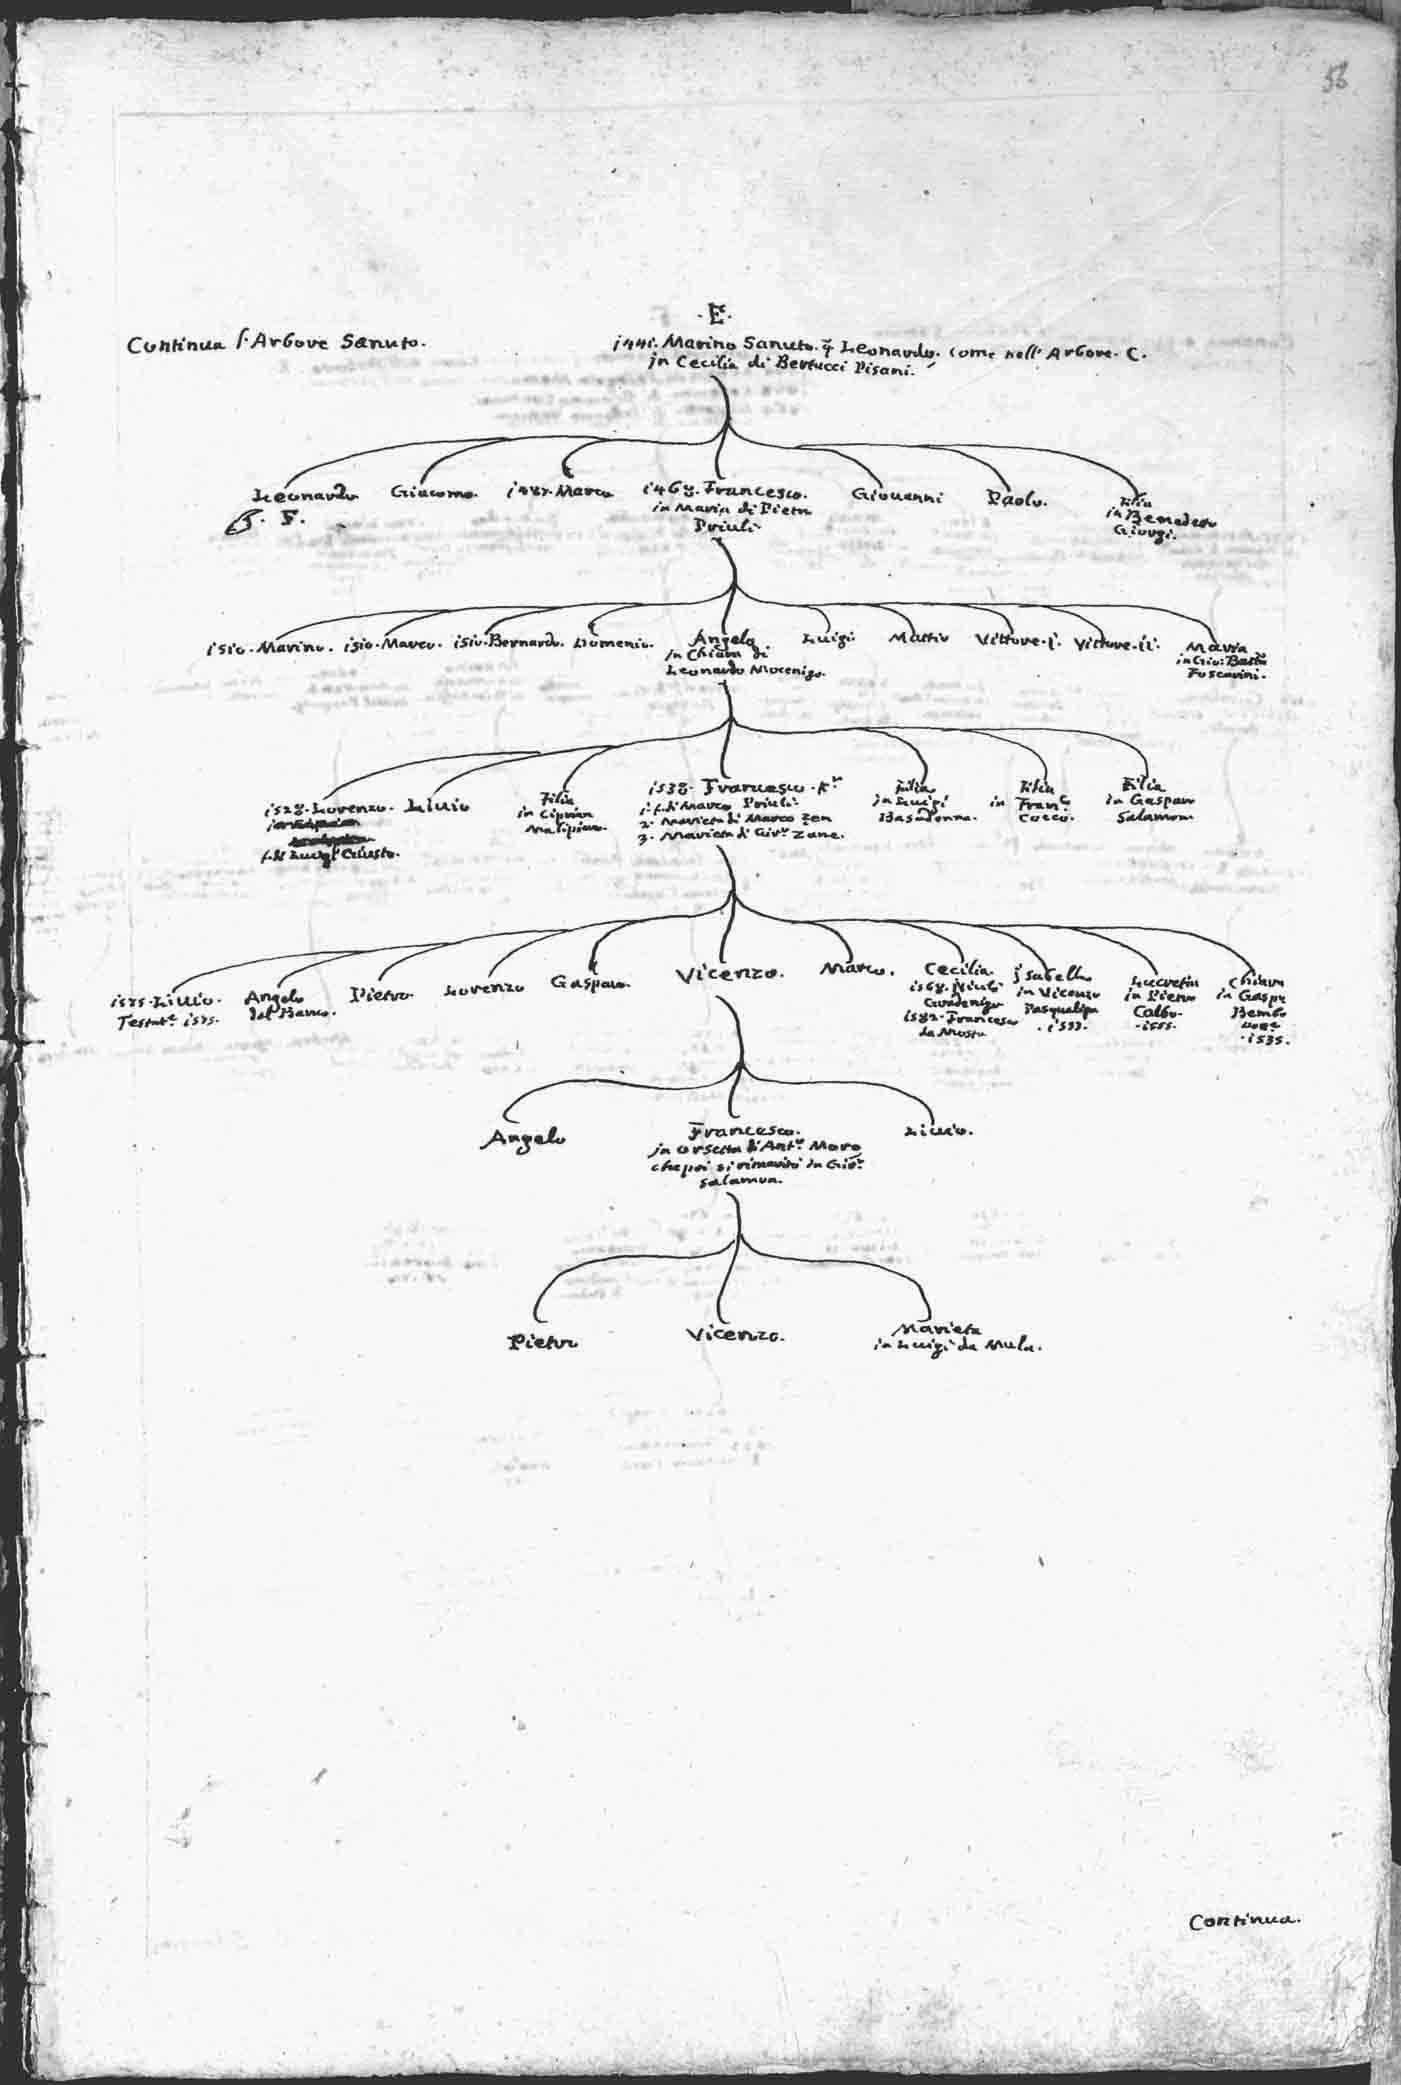 56
.E.
Continua l'Arbore Sanuto.
1441. Marino Sanuto. q Leonardo. come nell' Arbore. C.
in Cecilia di Bertucci Pisani.
Leonardo
F.
Giacomo.
Marco
1468. Francesco.
in Maria di Pietro
Priuli
Giovanni
Paolo.
Filia
in Benedetto
Giorgi.
1510. Marino.
1510. Marco.
1510. Bernardo.
Domenio.
Angelo
in Chiara di
Leonardo Mocenigo.
Luigi
Mattio
Vittore. i.
Vittore. ii.
Maria
in Gio: Batta
Foscarini.
1528. Lorenzo.
f. di Luigi Giusto.
Liuio
Filia
in Ciprian
Malipiero.
1538. Francesco. Kr
1. f. di Marco Priuli
2. Marieta di Marco Zen
3. Marieta di Gio. Zane.
Filia
in Luigi
Basadonna.
Filia
in Franc.
Cocco.
Filia
in Gasparo
Salamon
1575. Liuio.
Testat. 1575.
Angelo
dal Banco.
Pietro
Lorenzo
Gasparo.
Vicenzo.
Marco.
Cecilia.
1568.
Gradenigo
1582. Francesco
da Mosto
Isabella
in Vicenzo
Pasqualigo
Lucretia
in Pietro
Calbo.
1555.
Chiara
in Gaspr
Bembo
.1535.
Angelo
Francesco.
in Orsetta d'Ant. Moro
che poi si rimaritò in Gio.
Salamon.
Liuio.
Pietro
Vicenzo.
Marieta
in Luigi da Mula.
Continua.